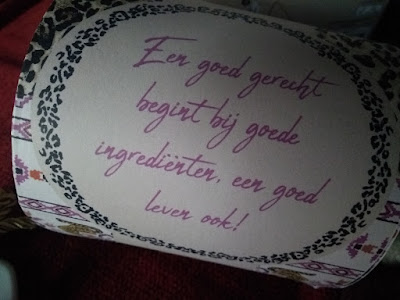 Een goed gerecht
begint bij goede
ingrediënten, een goed
leven ook!